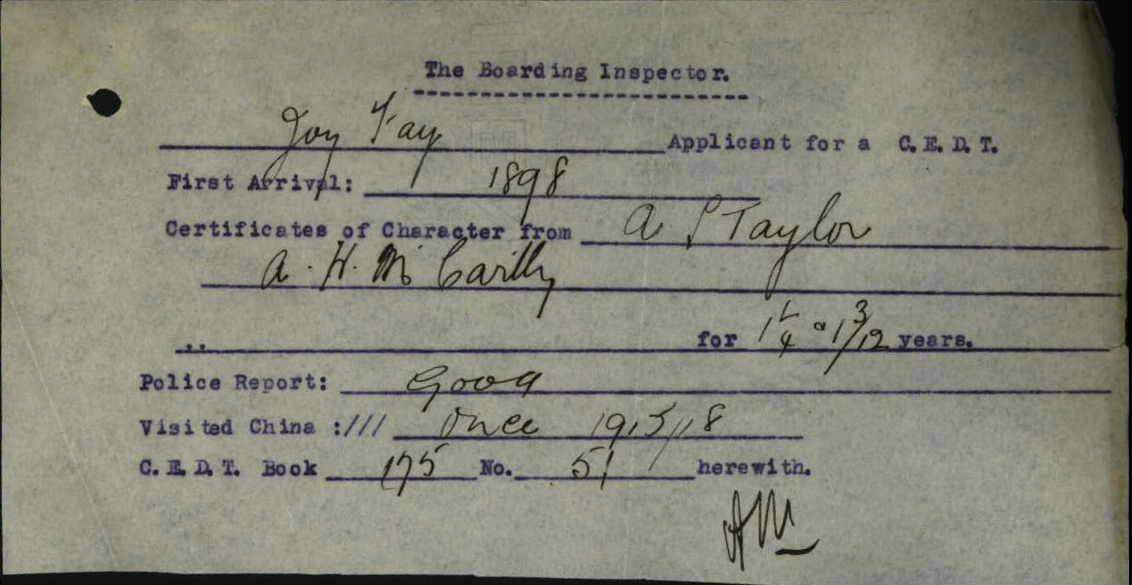 The Boarding Inspector.
Joy Fay Applicant for a C.E.D.T.
First Arrival: 1898
Certificates of Character from A S Taylor
A. H. McCarthy
,, for 1 1/4 & 1 3/12 years.
Police Report: Good
Visited China :/// Once 1915/18
C.E.D.T. Book 175 No. 51 herewith.